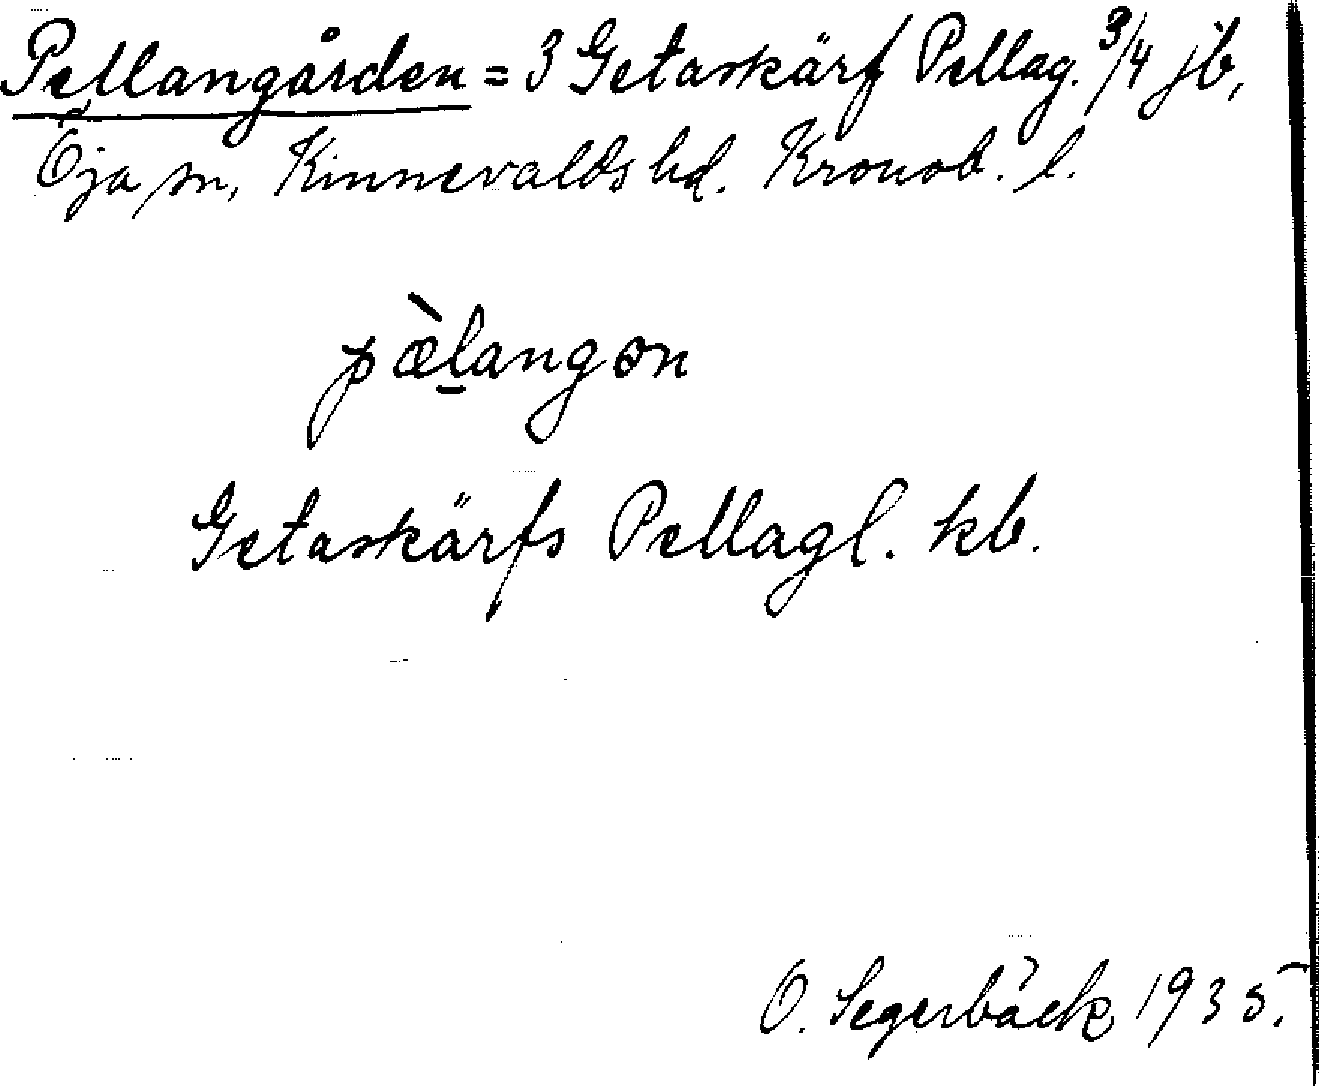 Pellangården = 3 Getaskärf Pellag. 3/4 jb,
Öja sn, Kinnevalds hd. Kronob. l.
pæ̀l̠angɔn
Getaskärfs Pellagl. kb.
O. Segerbäck 1935.